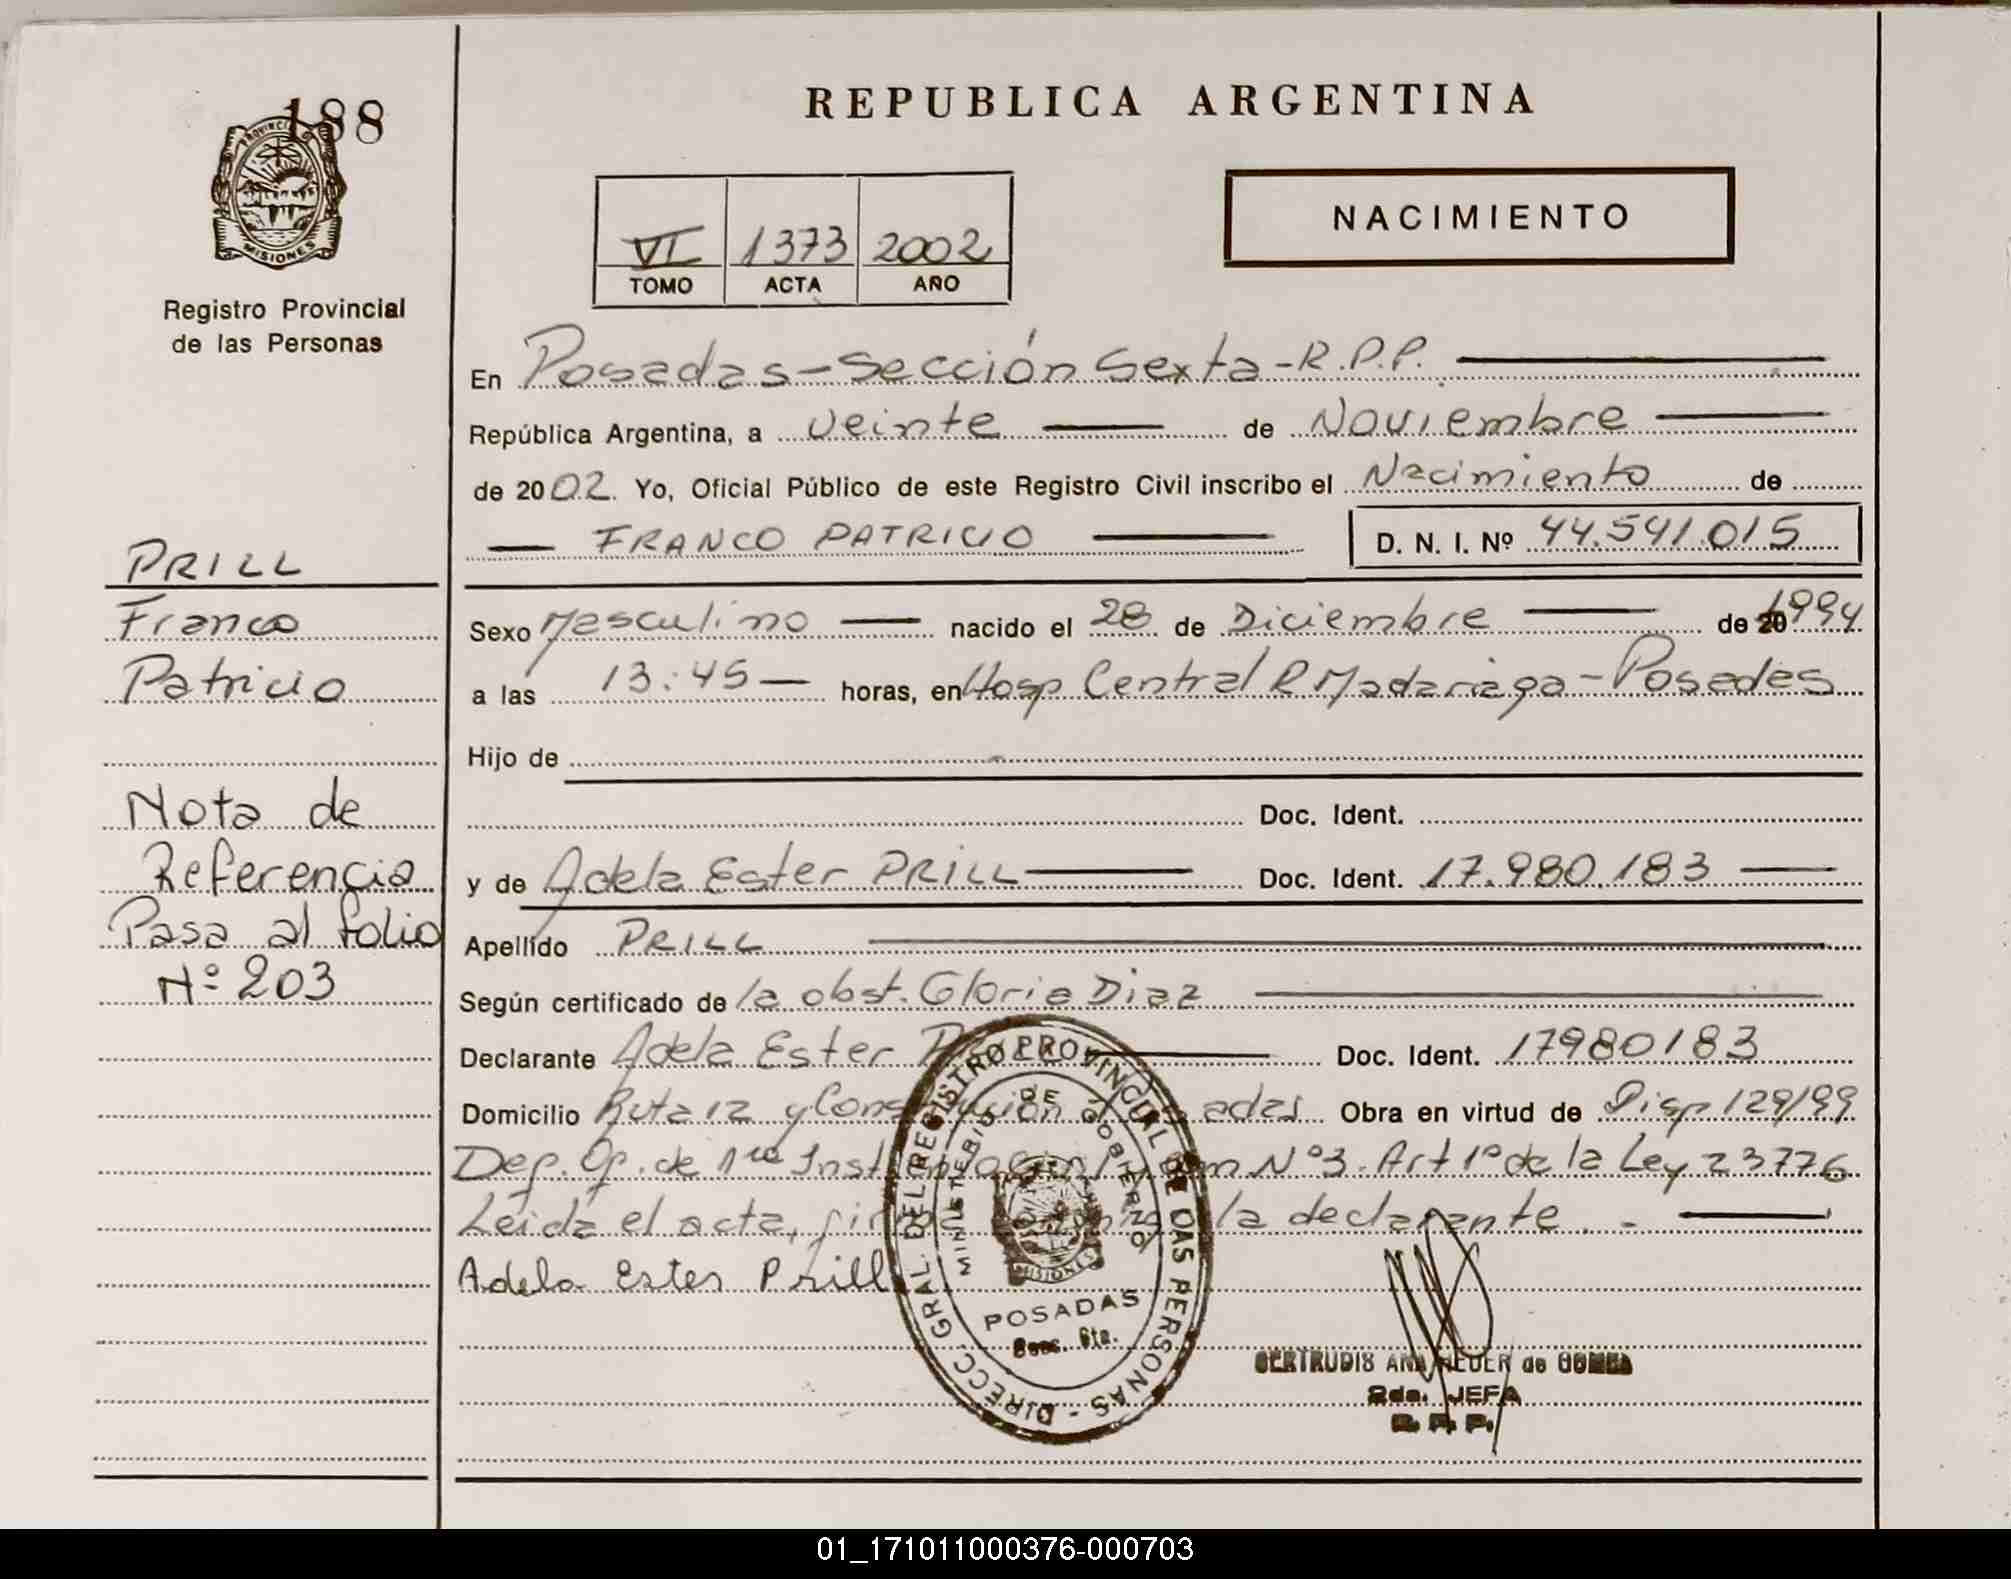 188
PROVINCIA
MISIONES
Registro Provincial
de las Personas
REPUBLICA ARGENTINA
VI 1373 2002
TOMO ACTA AÑO
NACIMIENTO
En Posadas - Sección Sexta - R.P.P.
República Argentina, a veinte de Noviembre
de 2002. Yo, Oficial Público de este Registro Civil inscribo el Nacimiento de
FRANCO PATRICIO D. N. I. Nº 44.541.015
PRILL
Franco
Patricio
Nota de
Referencia
Pasa al folio
Nº 203
Sexo Masculino nacido el 28 de Diciembre de 20 1994
a las 13:45 horas, en Hosp Central R Madariaga - Posadas
Hijo de
Doc. Ident.
y de Adela Ester PRILL Doc. Ident. 17.980.183
Apellido PRILL
Según certificado de la obst. Gloria Diaz
Declarante Adela Ester Doc. Ident. 17980183
Domicilio Ruta 12 y Obra en virtud de Disp 129/99
Dep. Op. de 1ra Nº3. Art 1º de la Ley 23776
Leida el acta, la declarante. -
Adela Ester Prill
DIRECC. GRAL. DEL REGISTRO PROVINCIAL DE LAS PERSONAS -
MINISTERIO DE GOBIERNO
MISIONES
POSADAS
Secc. 6ta.
GERTRUDIS ANA de
2da. JEFA
R. P. P.
01_171011000376-000703